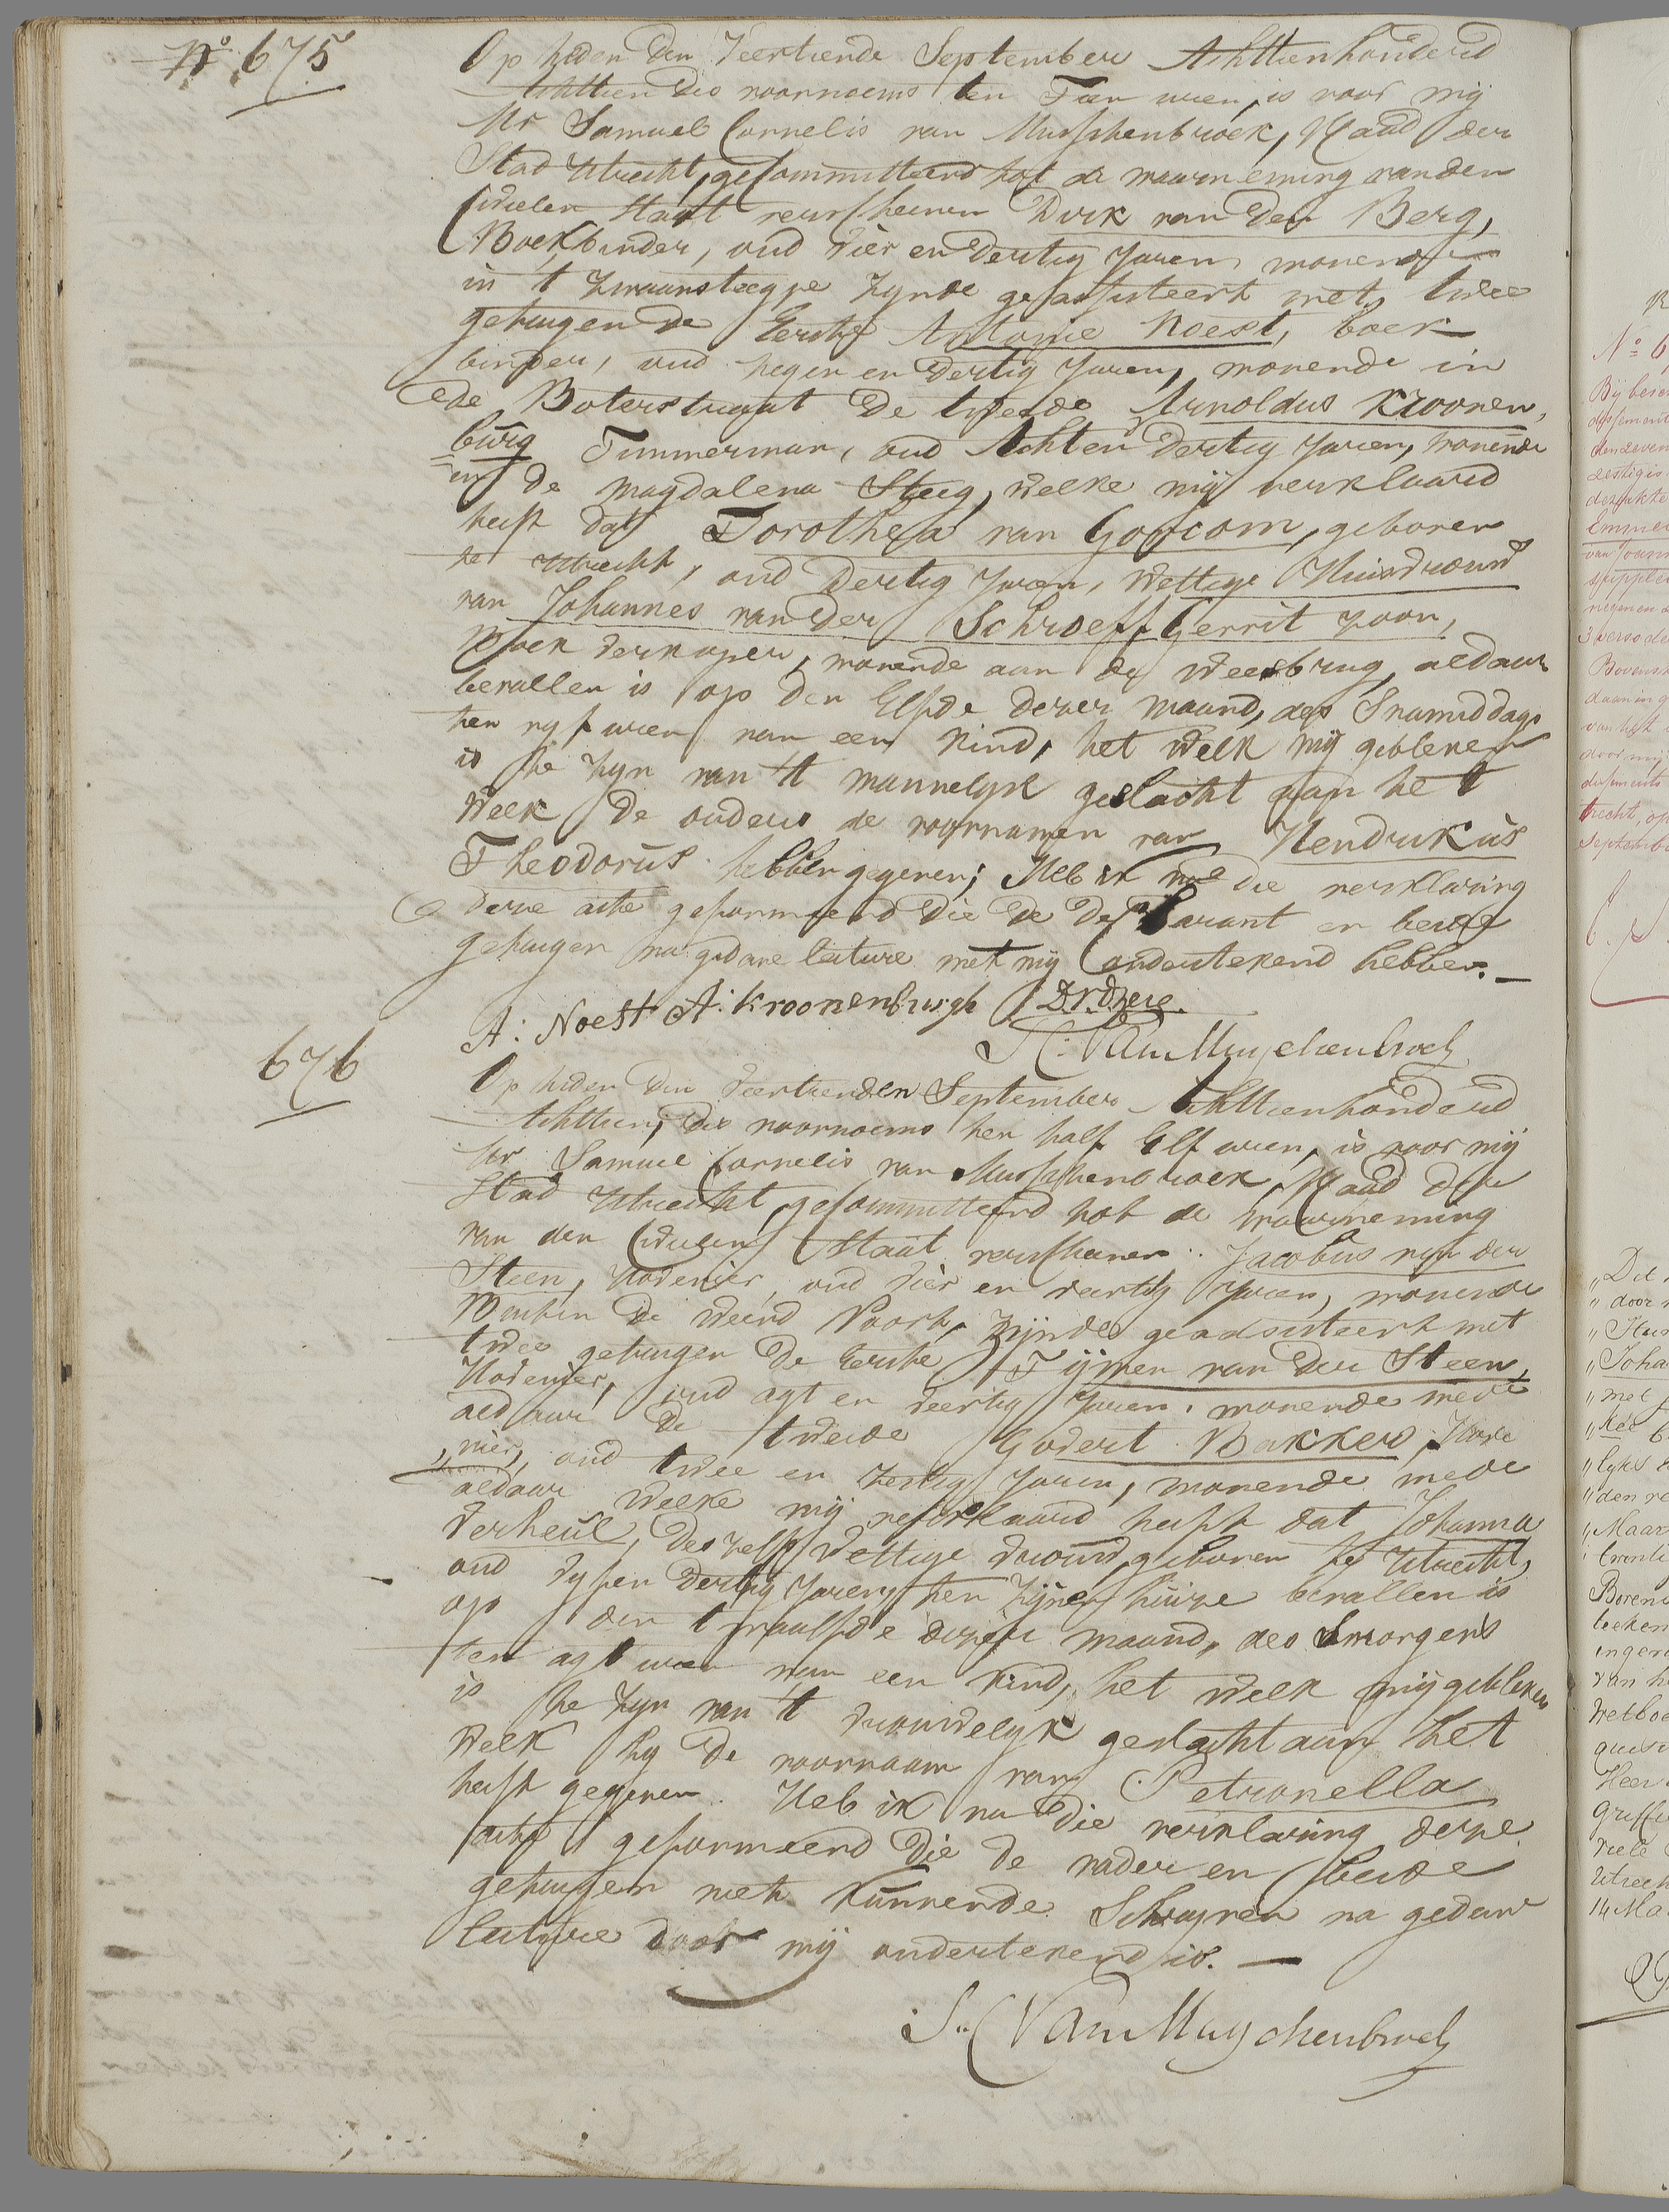 No. 675
Op heden den Veertiende September Achttienhonderd
Achttien des voornoems ten Tien uren, is voor mij
Mr Samuel Cornelis van Musschenbroek, Raad der
Stad Utrecht, gecommitteerd tot de waarneming van den
Civielen Staat verscheenen Dirk van den Berg,
Boekbinder, oud vier en dertig Jaren, wonende
in 't Zwaansteegje zynde geassisteert met twee
getuigen de Eerste Antonie Noest, boek
binder, oud negen en dertig Jaren, wonende in
de Boterstraat de tweede Arnoldus Kroonen,
burg Timmerman, oud Achten dertig Jaren, wonende
in de Magdalena Steeg, welke mij verklaard
heeft dat Dorothea van Gorcom, geboren
te Utrecht, oud dertig Jaren, wettige Huisvrouw
van Johannes van der Schroeff Gerrit zoon,
Boek verkoper, wonende aan de weesbrug, aldaar
bevallen is op den Elfde dezer maand, des Snamiddags
ten vyf uren van een kind, het welk mij gebleken
is te zyn van 't mannelyk geslacht aan het
welk de ouders de voornamen van Hendrikus
Theodorus hebben gegeven; Heb ik na die verklaring
deze acte geformeerd die de Declarant en beide
getuigen na gedane lecture met mij ondertekend hebben. —
A: Noest A: Kroonenburgh
S.C. Van Musschenbroek
676
Op heden den Veertienden September Achttienhonderd
Achttien, des voornoems ten half Elf uren, is voor mij
Mr Samuel Cornelis van Musschenbroek, Raad der
Stad Utrecht, gecommitteerd tot de waarneming
van den Civielen Staat verscheenen Jacobus van der
Steen, Hovenier, oud vier en veertig Jaren, wonende
Buiten de Weerd Poort, zijnde geadsisteert met
twee getuigen de Eerste Tijmen van der Steen,
Hovenier, oud agt en veertig Jaren, wonende mede
aldaar de tweede Godert Bakker, Hove
„nier, oud twee en zestig Jaren, wonende mede
aldaar welke mij verklaard heeft dat Johanna
Verheul, deszelfs wettige vrouw, geboren te Utrecht,
oud vyf en dertig Jaren, ten zijnen huize bevallen is
op den twaalfde dezer maand, des Smorgens
ten agt uren van een kind, het welk mij gebleken
is te zyn van 't vrouwelyk geslacht aan het
welk hy de voornaam van Petronella
heeft gegeven. Heb ik na die verklaring deze
acte geformeerd die de vader en beide
getuigen niet kunnende Schryven na gedane
lecture door mij ondertekend is. —
S. C Van Musschenbroek